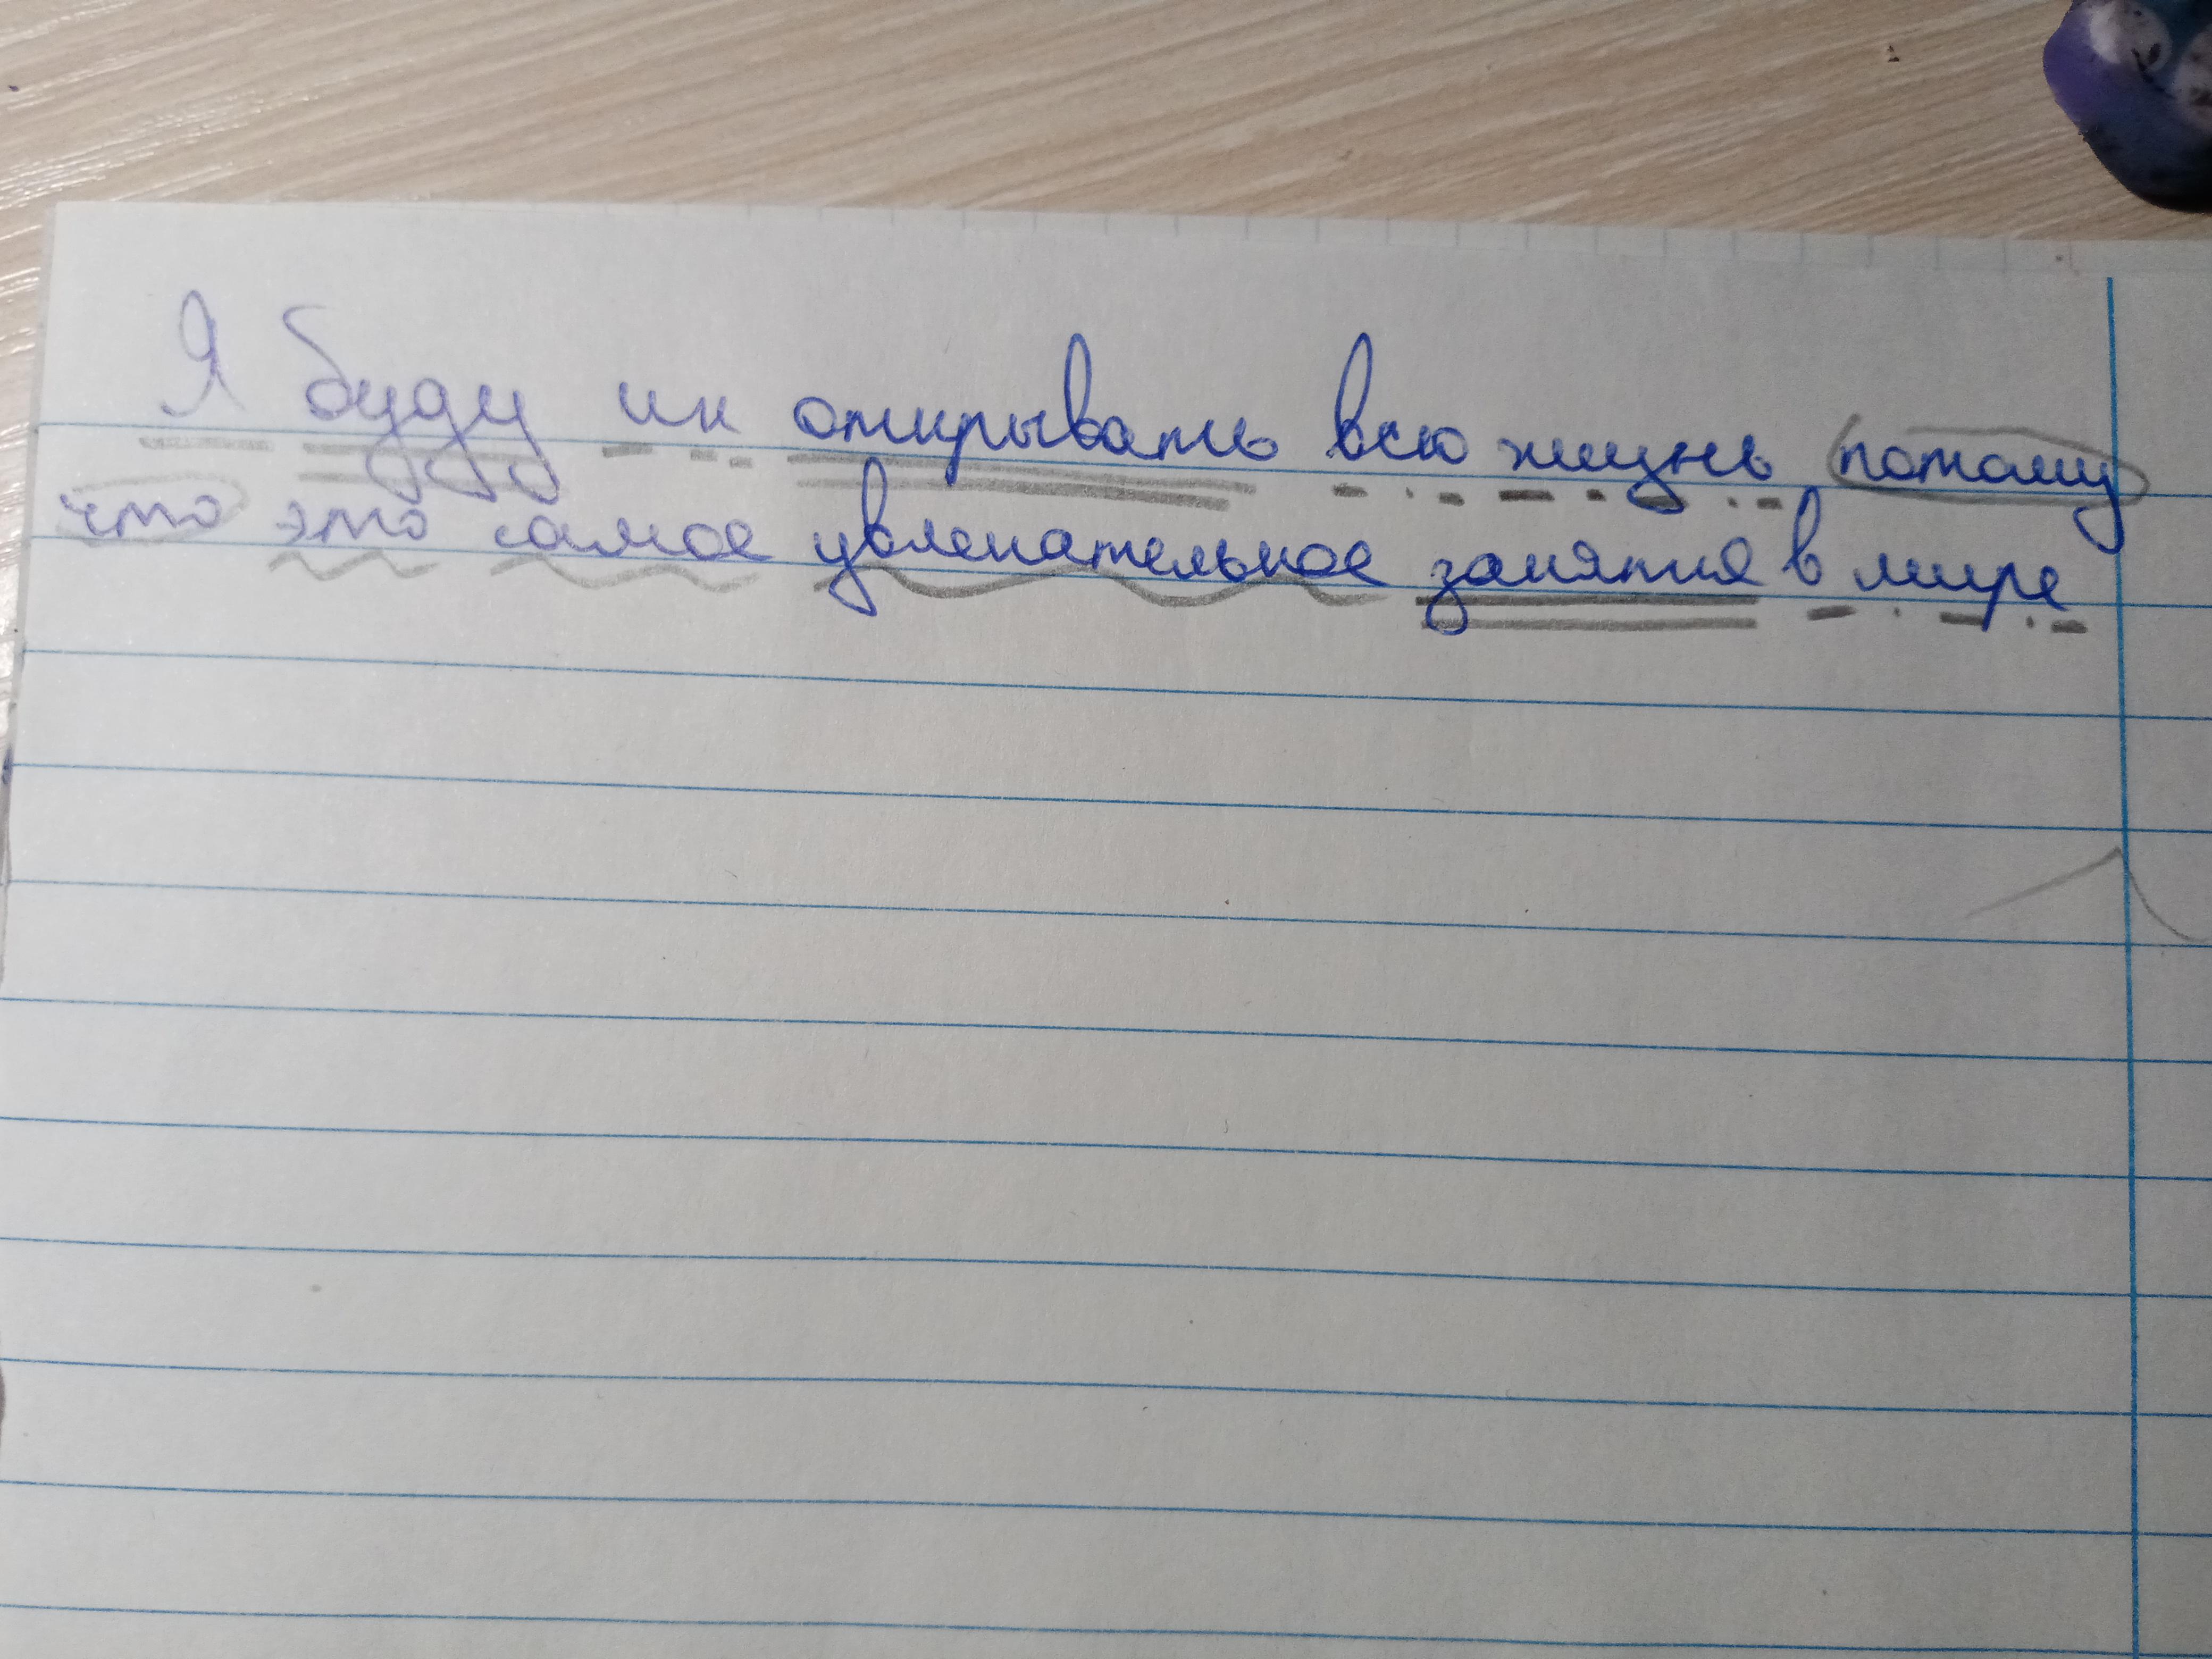 Я буду их открывать всю жизнь потому
что это самое увлекательное занятия в мире